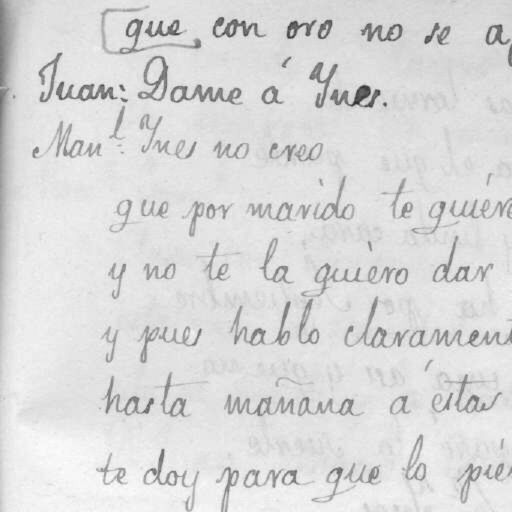 que con oro no se a
Juan: Dame á Ynes.
Manl. Ynes no creo
que por marido te quiére
y no te la quiéro dar
y pues hablo clarament
hasta mañana á éstas
te doy para que lo pié